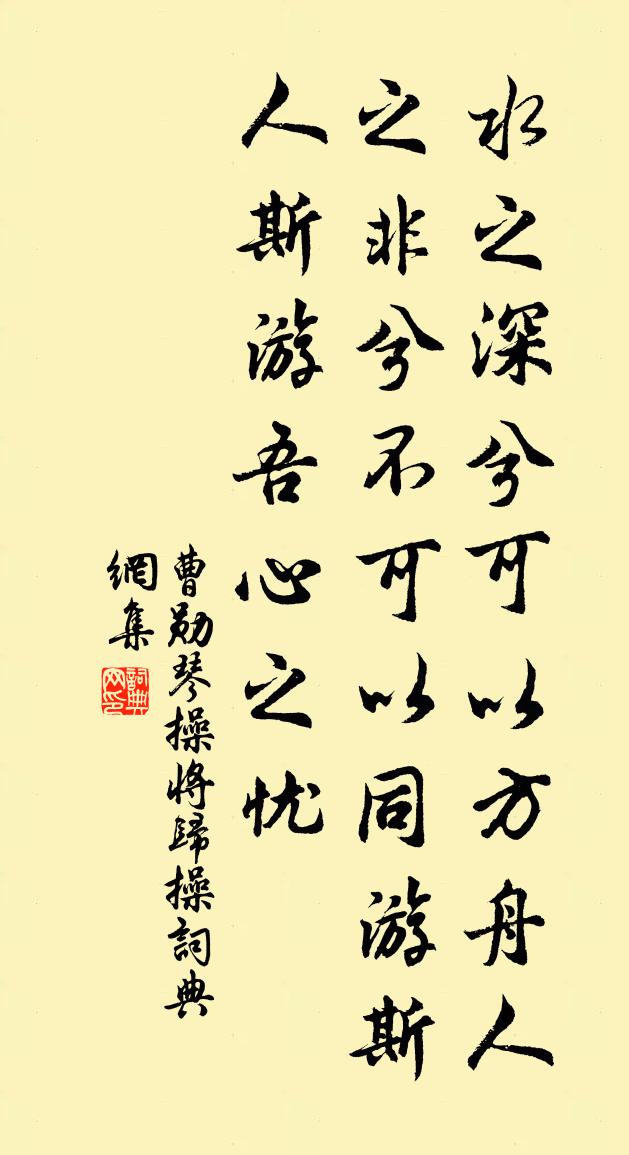 水之深兮可以方舟人
之非兮不可以同游斯
人斯游吾心之忧
曹勋琴操将歸操詞典
網集
詞典
网印